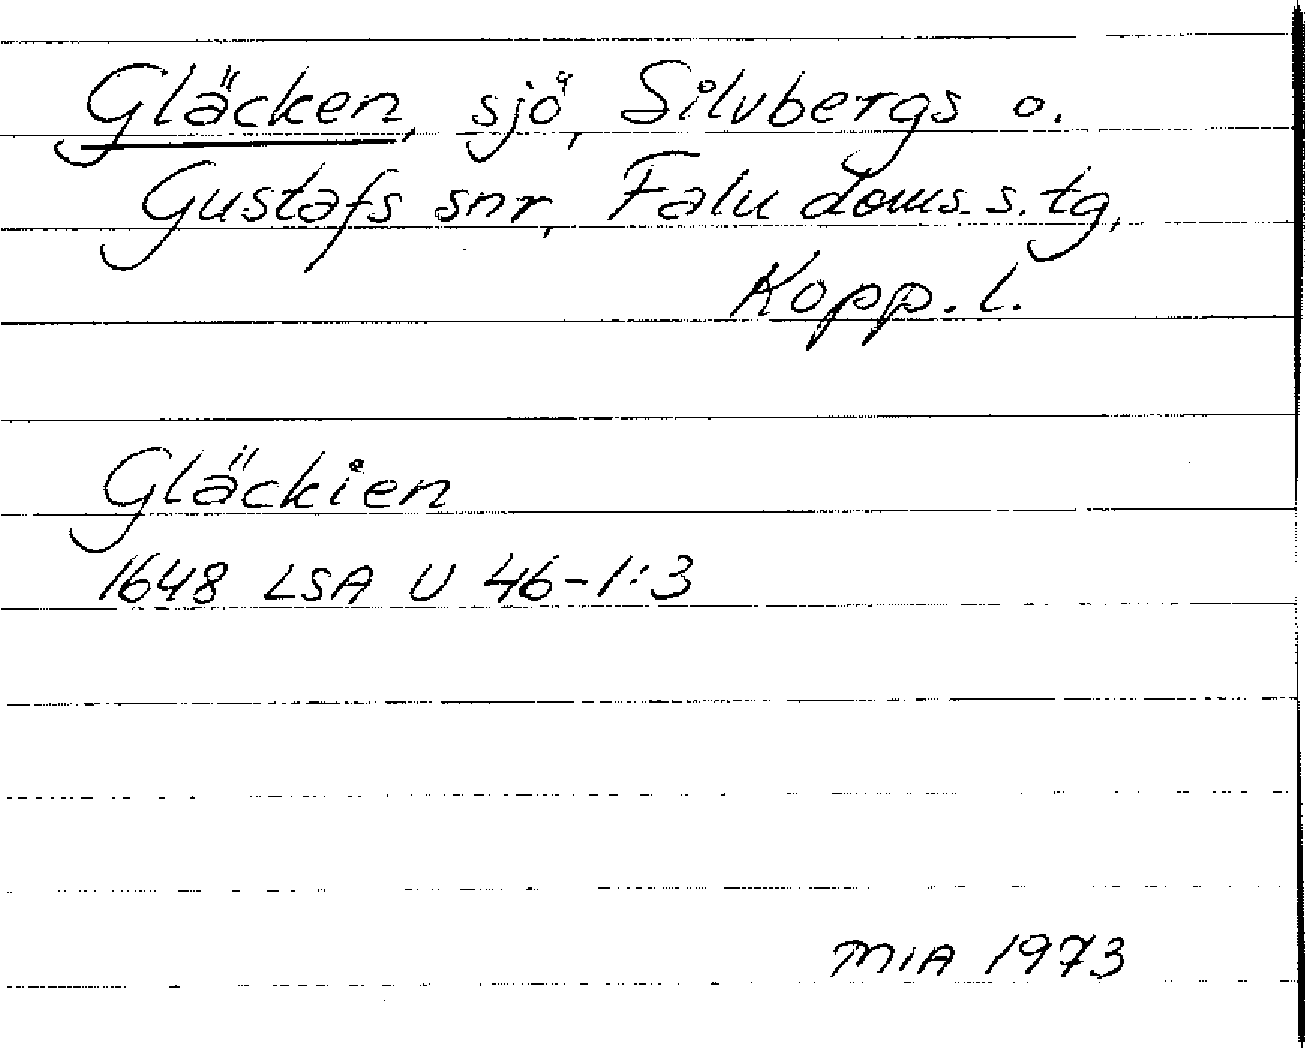 Gläcken, sjö, Silvbergs o.
Gustafs snr, Falu doms. s. tg,
Kopp. l.
Gläckien
1648 LSA U 46-1:3
MIA 1973